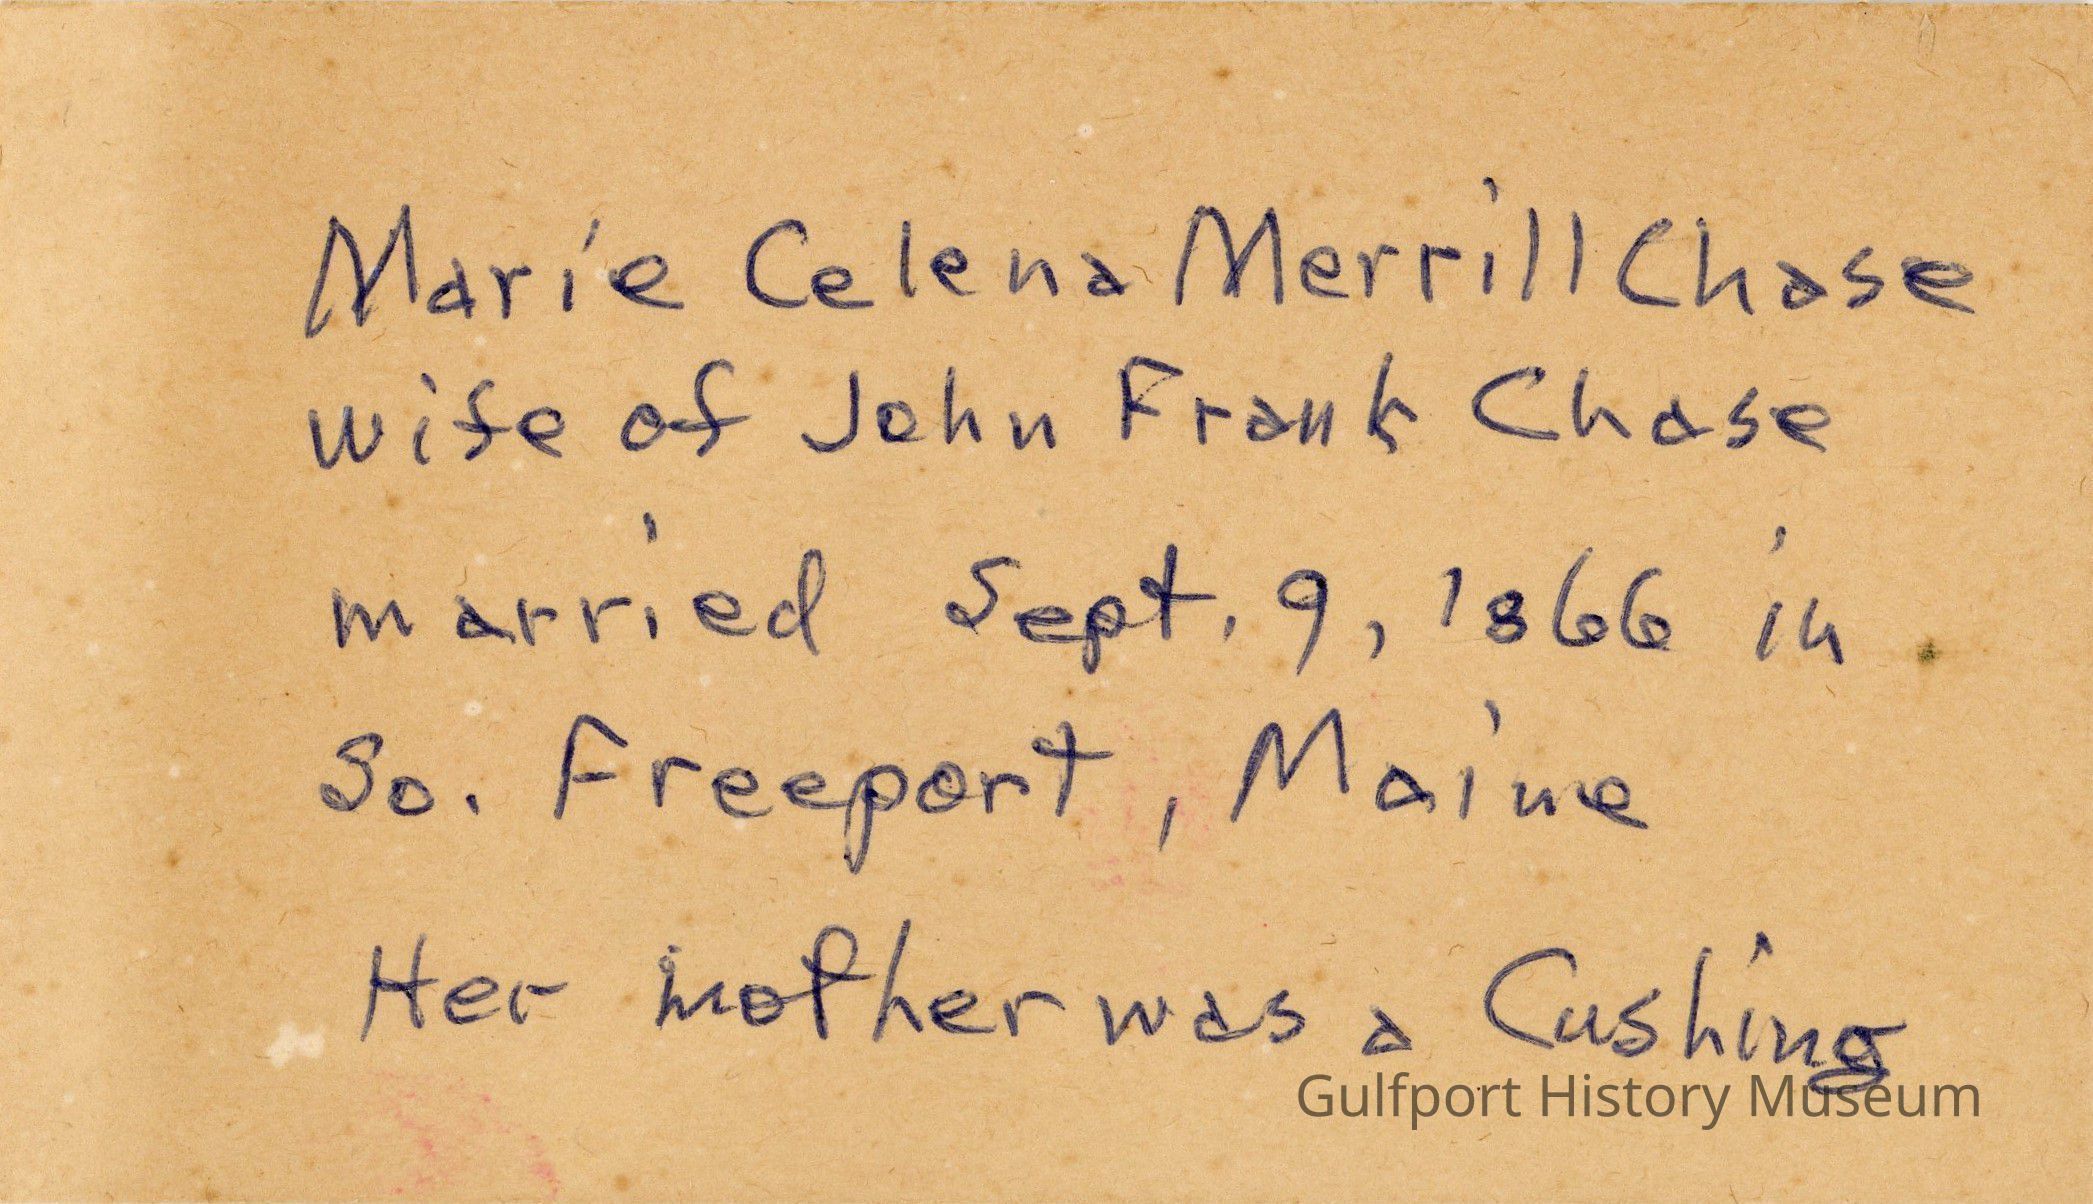 Marie Celena Merrill Chase
wife of John Frank Chase
married Sept. 9, 1866 in
So. Freeport, Maine
Her mother was a Cushing
Gulfport History Museum